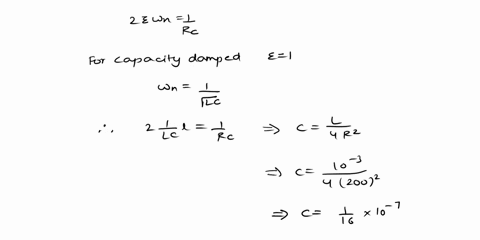 2 ξ ωn = 1/RC
For capacity damped ξ=1
ωn = 1/√LC
∴ 2 1/LC l = 1/RC ⇒ C = L/4R2
⇒ C = 10^-3/4(200)^2
⇒ C = 1/16 × 10^-7